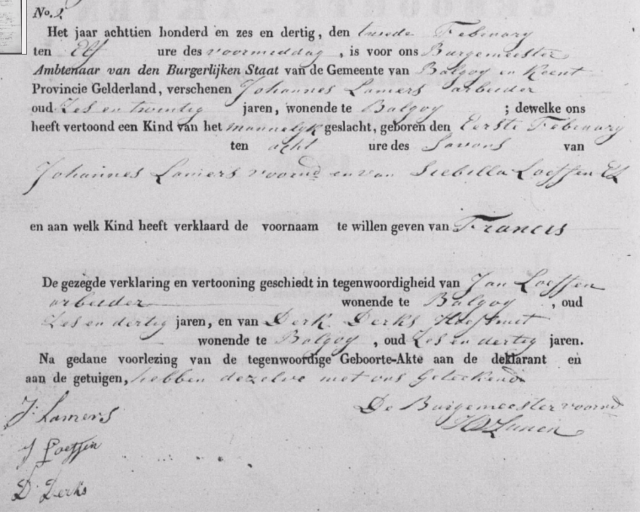 No. 3.
Het jaar achttien honderd en zes en dertig, den tweede February
ten Elf ure des voormiddag, is voor ons Burgemeester
Ambtenaar van den Burgerlijken Staat van de Gemeente van Balgoy en Keent
Provincie Gelderland, verschenen Johannes Lamers arbeider
oud Zes en twintig jaren, wonende te Balgoy ; dewelke ons
heeft vertoond een Kind van het mannelyk geslacht, geboren den Eerste February
ten acht ure des Savons van
Johannes Lamers voornd en van Siebilla Loeffen El
en aan welk Kind heeft verklaard de voornaam te willen geven van Francis
De gezegde verklaring en vertooning geschiedt in tegenwoordigheid van Jan Loeffen
arbeider wonende te Balgoy, oud
Zes en dertig jaren, en van Derk Derks
wonende te Balgoy, oud Zes en dertig jaren.
Na gedane voorlezing van de tegenwoordige Geboorte-Akte aan de deklarant en
aan de getuigen, hebben dezelve met ons Geteekend
De Burgemeester voornd
J. Lamers
J Loeffen
D. Derks